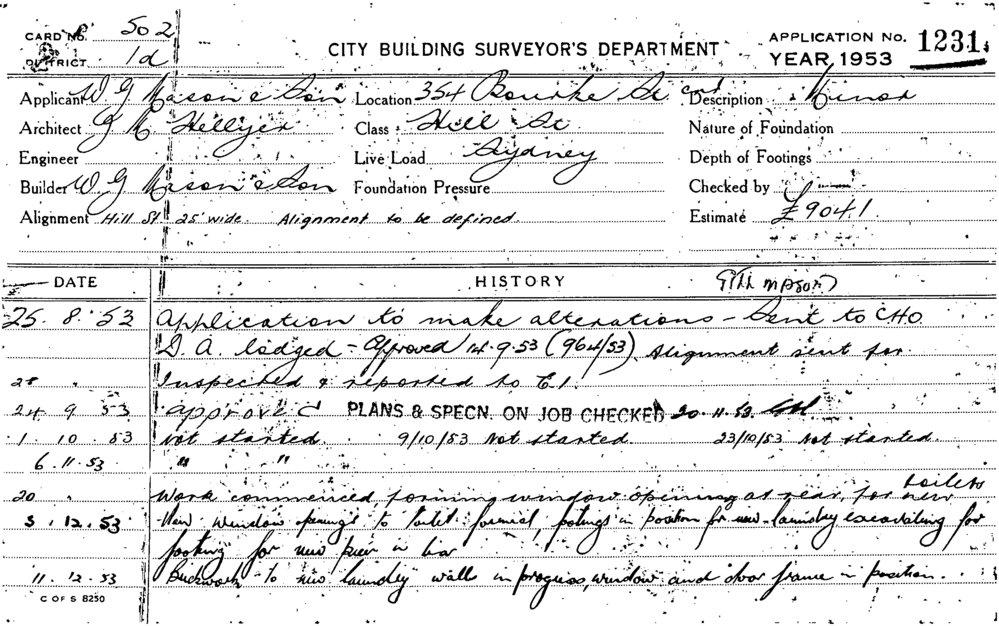 CARD No. 502
DISTRICT 1d
CITY BUILDING SURVEYOR'S DEPARTMENT
APPLICATION No. 1231.
YEAR 1953
Applicant W. G. Mason & Son Location 354 Bourke St. cnr Description Minor
Architect J. M. Hellyer Class Hill St Nature of Foundation
Engineer Live Load Sydney Depth of Footings
Builder W. G. Mason & Son Foundation Pressure Checked by
Alignment Hill St. 25' wide. Alignment to be defined. Estimate £9041
DATE HISTORY
25. 8. 53 Application to make alterations - Sent to C.H.O.
D. A. lodged - Approved 14.9.53 (964/53). Alignment sent for
28 " Inspected & reported to E.I.
24 9 53 approved PLANS & SPECN. ON JOB CHECKED 20.11.53
1. 10. 53 Not started. 9/10/53 Not started. 23/10/53 Not started.
6. 11. 53 " "
20 " Work commenced forming window opening at rear, for new toilets
3. 12. 53 New window openings to toilet formed, footings in position for new laundry excavating for
footing for new pier in bar
11. 12. 53 Brickwork to new laundry walls in progress, window and door frame in position.
C OF S 8250